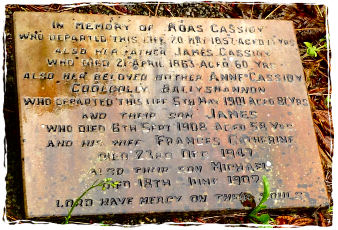 IN MEMORY OF ROAS CASSIDY
WHO DEPARTED THIS LIFE 20 FEB 1857 AGED 15 YRS
ALSO HER FATHER JAMES CASSIDY
WHO DIED 21 APRIL 1863 AGED 60 YRS
ALSO HER BELOVED MOTHER ANNE CASSIDY
COOLCOLLY BALLYSHANNON
WHO DEPARTED THIS LIFE 5TH MAY 1901 AGED 81 YRS
AND THEIR SON JAMES
WHO DIED 6TH SEPT 1908 AGED 58 YRS
AND HIS WIFE FRANCES CATHERINE
DIED 22ND DEC 1947
ALSO THEIR SON MICHAEL
DIED 18TH JUNE 1907
LORD HAVE MERCY ON THEIR SOULS